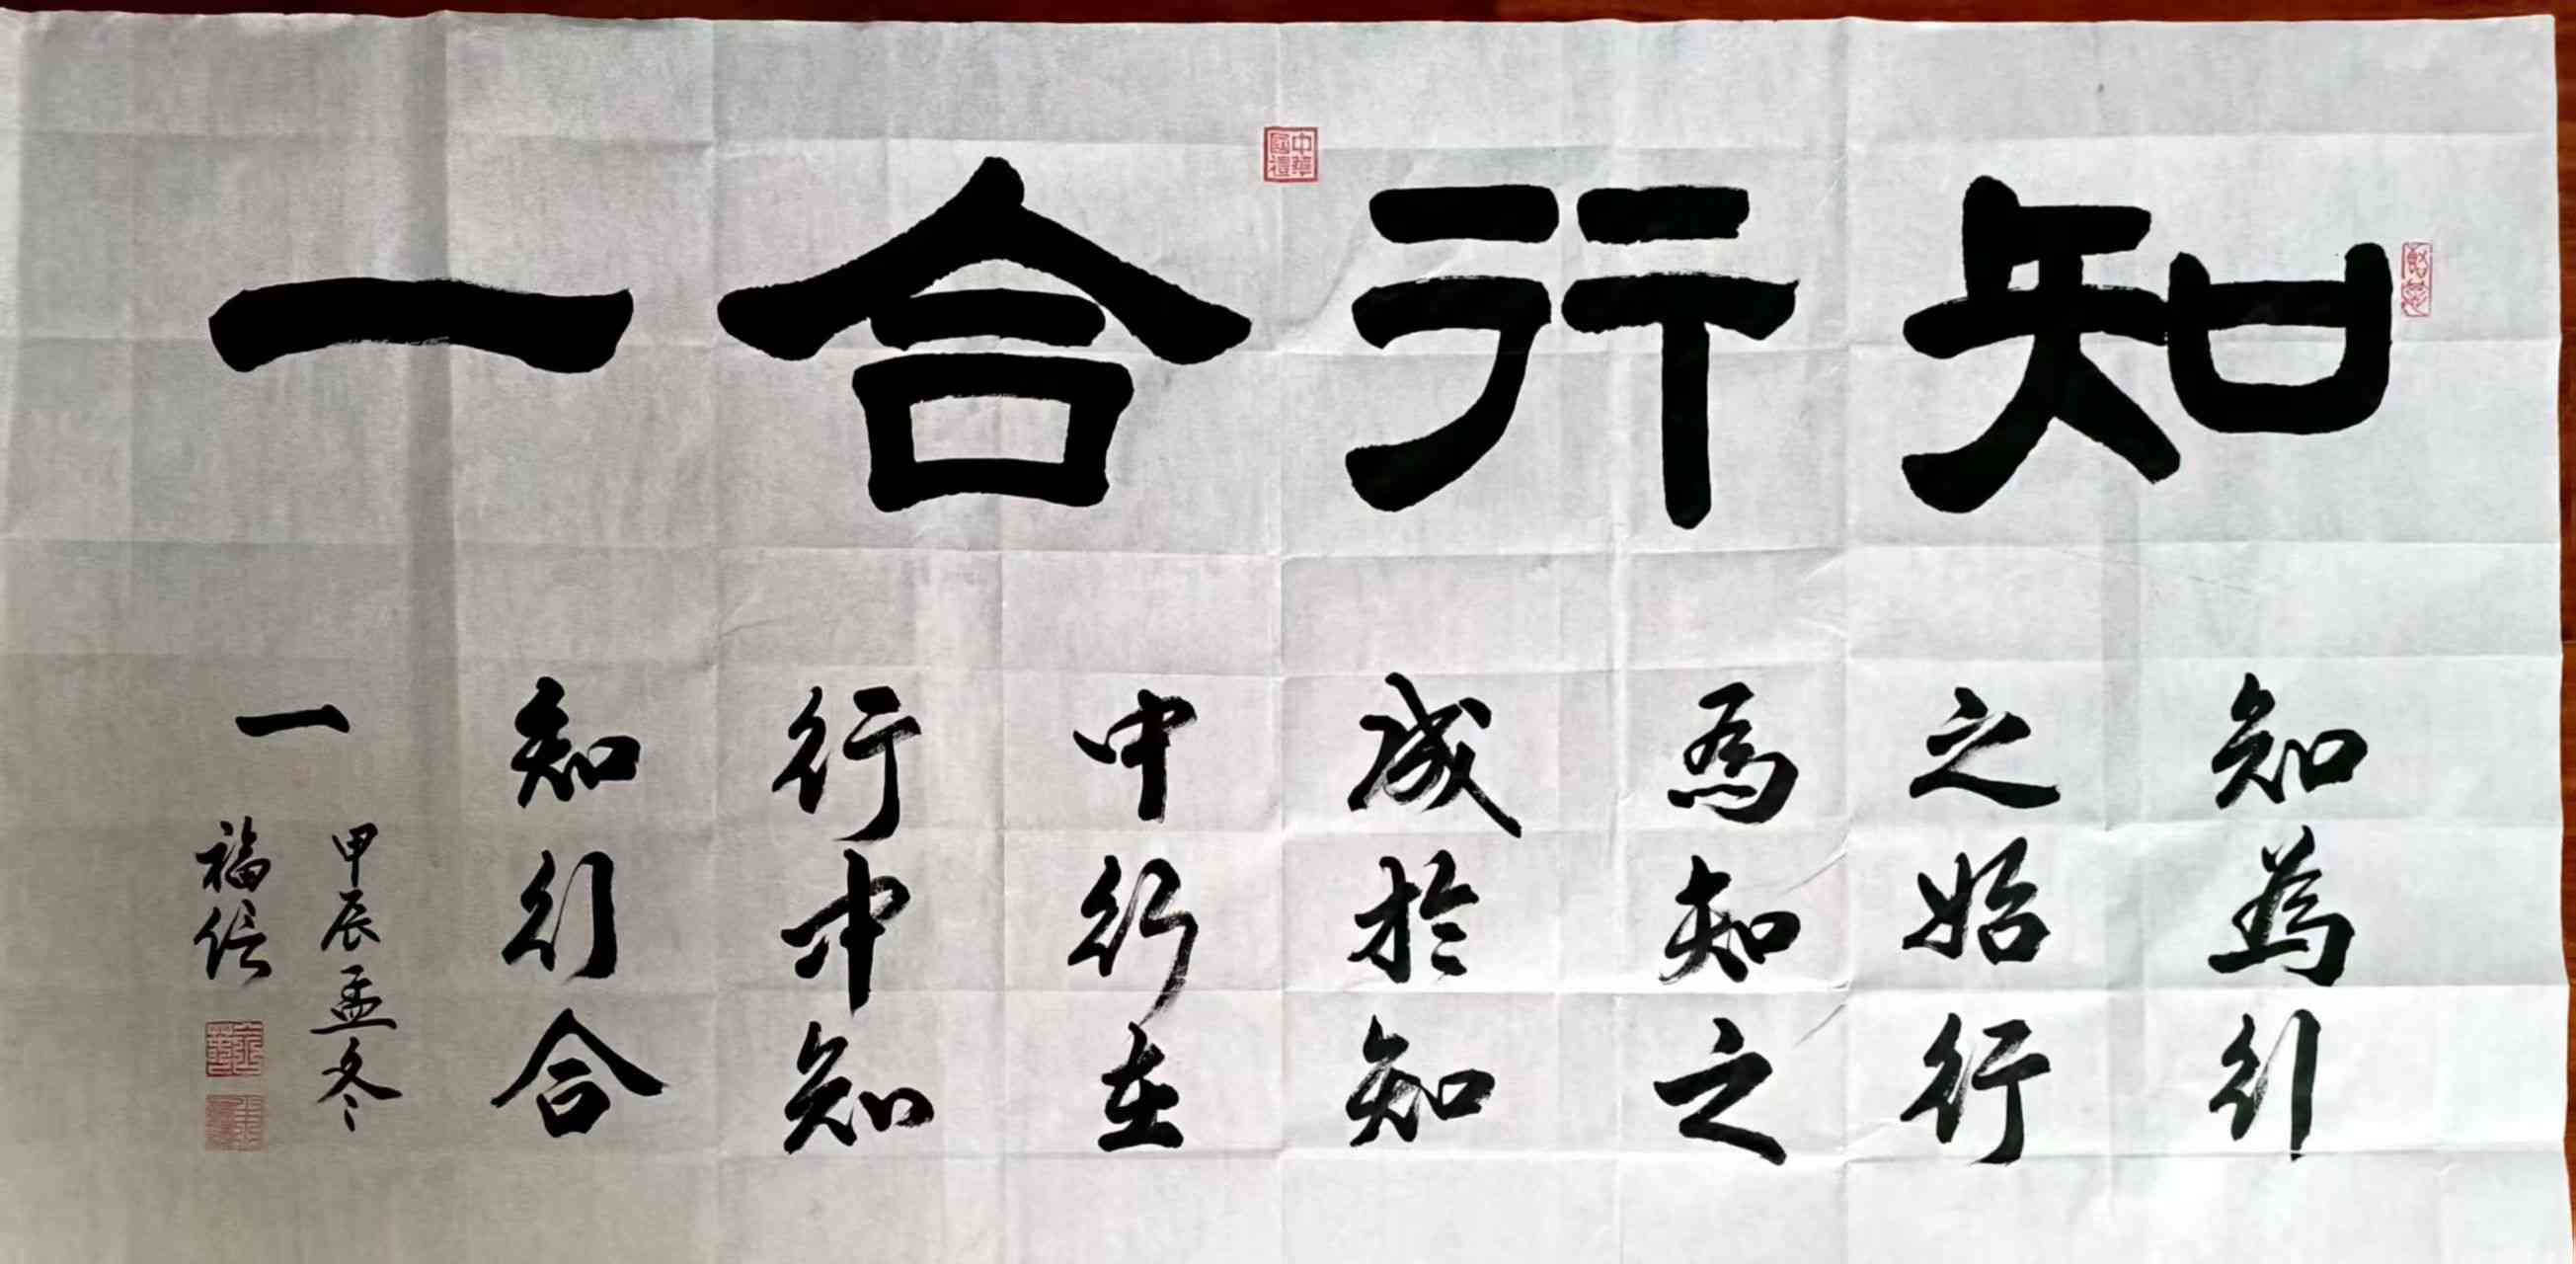 知行合一
知為行
之始行
為知之
成於知
中行在
行中知
知行合
一
甲辰孟冬
福信
中華國禮